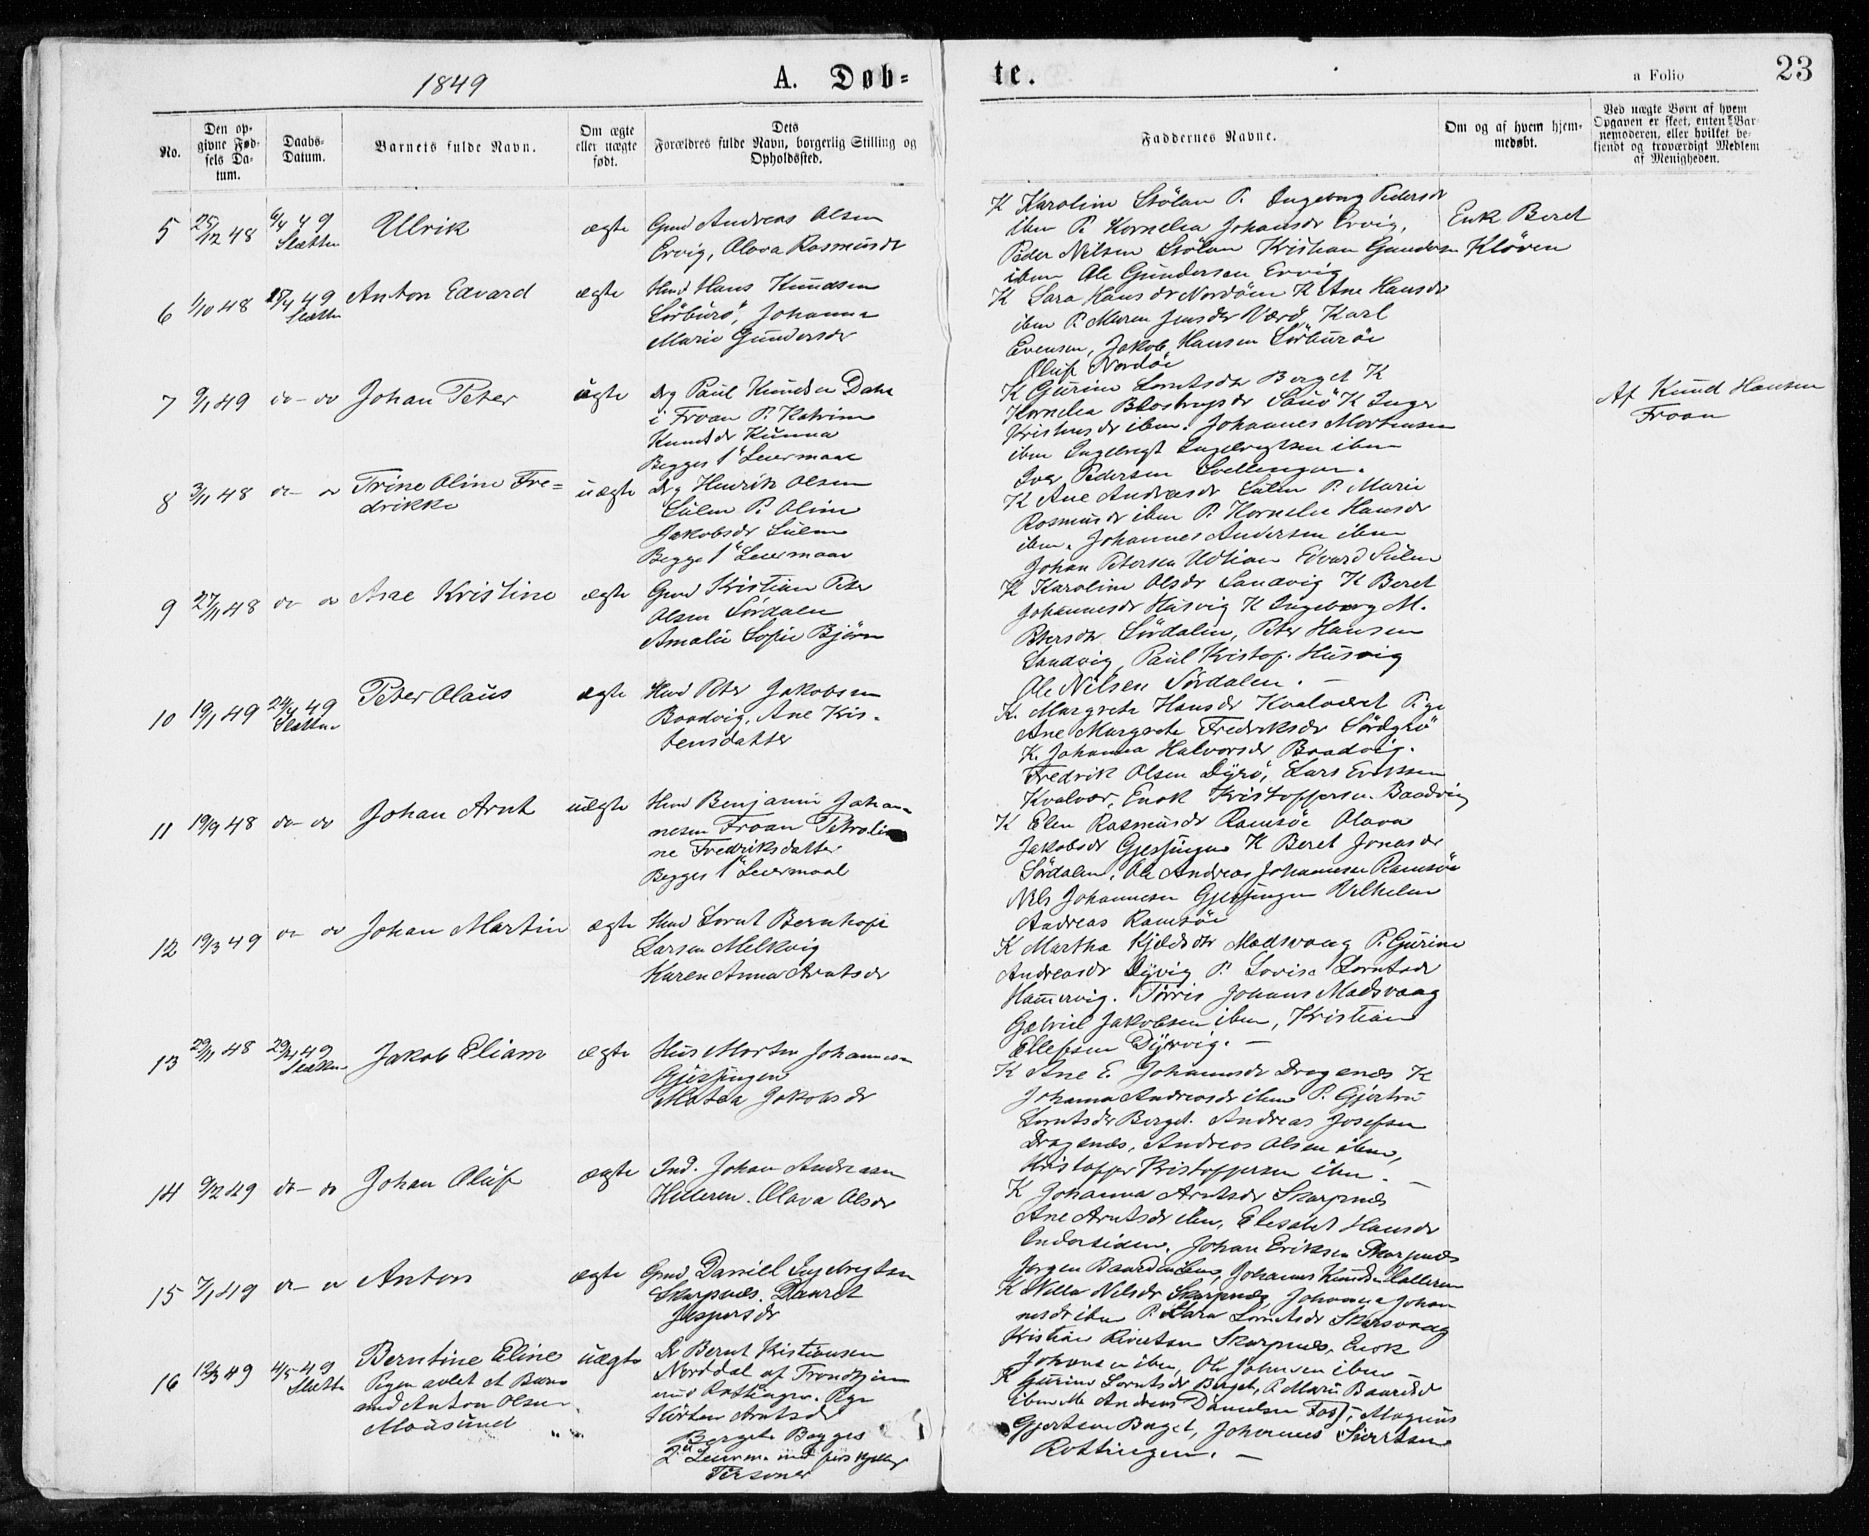 1849
A. Døb-
te.
a Folio
23
No.
Den op-
givne Fød-
sels Da-
tum.
Daabs-
Datum.
Barnets fulde Navn.
Om ægte
eller uægte
født.
Dets
Forældres fulde Navn, borgerlig Stilling og
Opholdssted.
Faddernes Navne.
Om og af hvem hjem-
medøbt.
Ved uægte Børn af hvem
Opgaven er skeet, enten Bar-
nemoderen, eller hvilket be-
kjendt og troværdigt Medlem
af Menigheden.
5
25/12 48
6/4 49
Slætten
Ulrik
ægte
Gmd Andreas Olsen
Ervig, Olava Rasmusdr
K Karoline Stölan P. Ingeborg Pedersdr
iben P. Kornelia Johansdr Ervig,
Peder Nilsen Stölan Kristian Gundersen
iben Ole Gundersen Ervig
Enk Beret
Kløven
6
1/10 48
15/4 49
Slætten
Anton Edvard
ægte
Hmd Hans Knudsen
Sörburö, Johanna
Marie Gundersdr
K Sara Hansdr Nordöen K Ane Hansdr
iben P. Maren Jensdr Værö, Karl
Evensen, Jakob Hansen Sörburöe
Oluf Nordöe
7
9/1 49
do - do
Johan Peter
uægte
Drg Paul Knudsen Dahl
i Froan P. Katrine
Knudsdr Kunna
Begges 1ste Leiermaal
K Gurine Lorntsdr Berget K
Kornelia Brostrupsdr Sauö K Inger
Kristensdr iben. Johannes Mortensen
iben Ingebrigt Ingebrigtsen iben
Iver Pedersen Svellingen.
Af Knud Hansen
Froan
8
3/11 48
do - do
Trine Oline Fre=
drikke
uægte
Drg Henrik Olsen
Sulen P. Oline
Jakobsdr Sulen
Begge 1ste Leiermaal
K Ane Andreasdr Sulen P. Marie
Rasmusdr iben P. Kornelia Hansdr
iben. Johannes Andersen iben
Johan Petersen Udtian Edvard Sulen
9
27/11 48
do - do
Ane Kristine
ægte
Gmd Kristian Peter
Olsen Sördalen
Amalie Sofie Bjørn
K Karoline Olsdr Sandvig K Beret
Johannesdr Husvig K Ingeborg M.
Petersdr Sördalen, Peter Hansen
Sandvig, Paul Kristof. Husvig
Ole Nilsen Sördalen. —
10
19/1 49
24/4 49
Slætten
Peter Olaus
ægte
Hmd Peter Jakobsen
Baadvig, Ane Kris-
tensdatter
K. Margrete Hansdr Kvalværet Pige
Ane Margrete Fredriksdr Sördyrö
K. Johanna Halvorsdr Baadvig.
Fredrik Olsen Dyrö, Lars Eriksen
Kvalvær, Enok Kristoffersen Baadvig
11
19/9 48
do - do
Johan Arnt
uægte
Hmd Benjamin Johan-
nesen Froan Petroli
ne Fredriksdatter
Begges 1ste Leiermaal
K Elen Rasmusdr Ramsöe Olava
Jakobsdr Gjessingen K Beret Jonasdr
Sördalen, Ole Andreas Johannesen Ramsöe
Nils Johannesen Gjessingen Vilhelm
Andreas Ramsöe
12
19/3 49
do do
Johan Martin
ægte
Hmd Lornt Bernhoft
Larsen Melkvig
Karen Anna Arntsdr
K Martha Kjeldsdr Madsvaag P. Gurine
Andreasdr Dyrvig P. Lovise Lorntsdr
Hammervig. Tørris Johans Madsvaag
Gabriel Jakobsen iben, Kristian
Ellefsen Dyrvig. —
13
29/11 48
29/4 49
Slætten
Jakob Eliam
ægte
Hus Morten Johannesen
Gjessingen
Matea Jakobsdr
K Ane E. Johannesdr Dragenes K
Johanna Andreasdr iben P. Gjertru
Lorntsdr Berget. Andreas Josefsen
Dragsnæs, Andreas Olsen iben,
Kristoffer Kristoffersen iben. —
14
9/2 49
do - do
Johan Oluf
ægte
Ind. Johan Andreasen
Hilleren. Olava Olsdr
K Johanna Arntsdr Skarpnæs
Ane Arntsdr iben, Elisabet Hansdr
Undersiden. Johan Eriksen Skarpnæs
Jørgen Baardsen iben, Johannes Knudsen Halleren
15
7/1 49
do - do
Anton
ægte
Gmd Daniel Ingebrigtsen
Skarpnæs. Dauret
Jespersdr
K Nella Nilsdr Skarpnæs, Johanna Johan
nesdr iben P. Sara Lorntsdr Skarsvaag
Kristian Sivertsen Skarpnæs, Enok
Johansen iben, Ole Johansen iben —
16
12/3 49
4/5 49
Slætte
Berntine Eline
Pigen avlet et Barn
med Anton Olsen
Mausund
uægte
Dr Bernt Kristiansen
Norddal af Trondhjem
nu Rottingen. Pige
Kirsten Arntsdr
Berget. Begges
2det Leierm. med forskjellige
Personer
K Gurine Lorntsdr Berget, P. Marie Baardsdr
iben Andreas Danielsen Fos, Magnus
Gjertsen Berget, Johannes Sivertsen
Rottingen. —